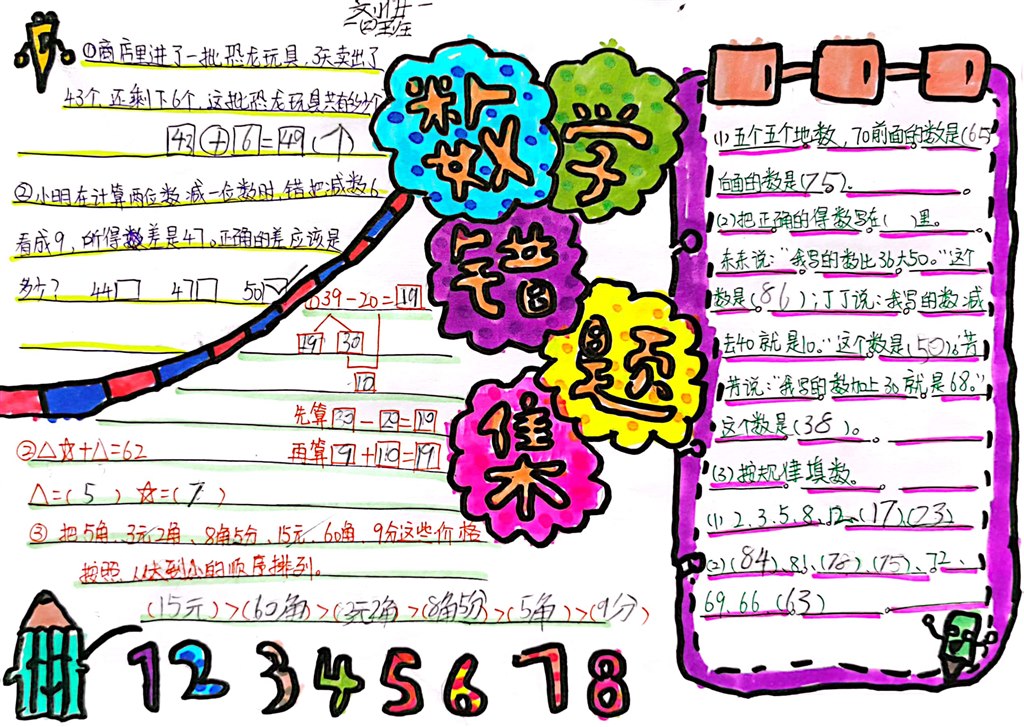 一(四)班
①商店里进了一批恐龙玩具,3天卖出了
43个,还剩下6个,这批恐龙玩具共有多少个
43+6=49(个)
②小明在计算两位数减一位数时,错把减数6
看成9,所得数差是47。正确的差应该是
多少? 44□ 47□ 50☑
39-20=19
30
10
先算
②△☆+△=62
再算
△=(5) ☆=(7)
③把5角、3元2角、8角5分、15元、60角、9分这些价格
按照从大到小的顺序排列。
(15元)>(60角)>(3元2角)>(8角5分)>(5角)>(9分)
数学
错
题
集
(1)五个五个地数,70前面的数是(65
后面的数是(75)。
(2)把正确的得数写在( )里。
东东说:“我写的数比36大50。”这个
数是(86);丁丁说:我写的数减
去40就是10。”这个数是(50)。芳
芳说:“我写的数加上30就是68。”
这个数是(38)。
(3)按规律填数。
(1)2、3、5、8、12、(17)、(23)
(2)(84)、81、(78)、(75)、72、
69、66、(63)
1 2 3 4 5 6 7 8